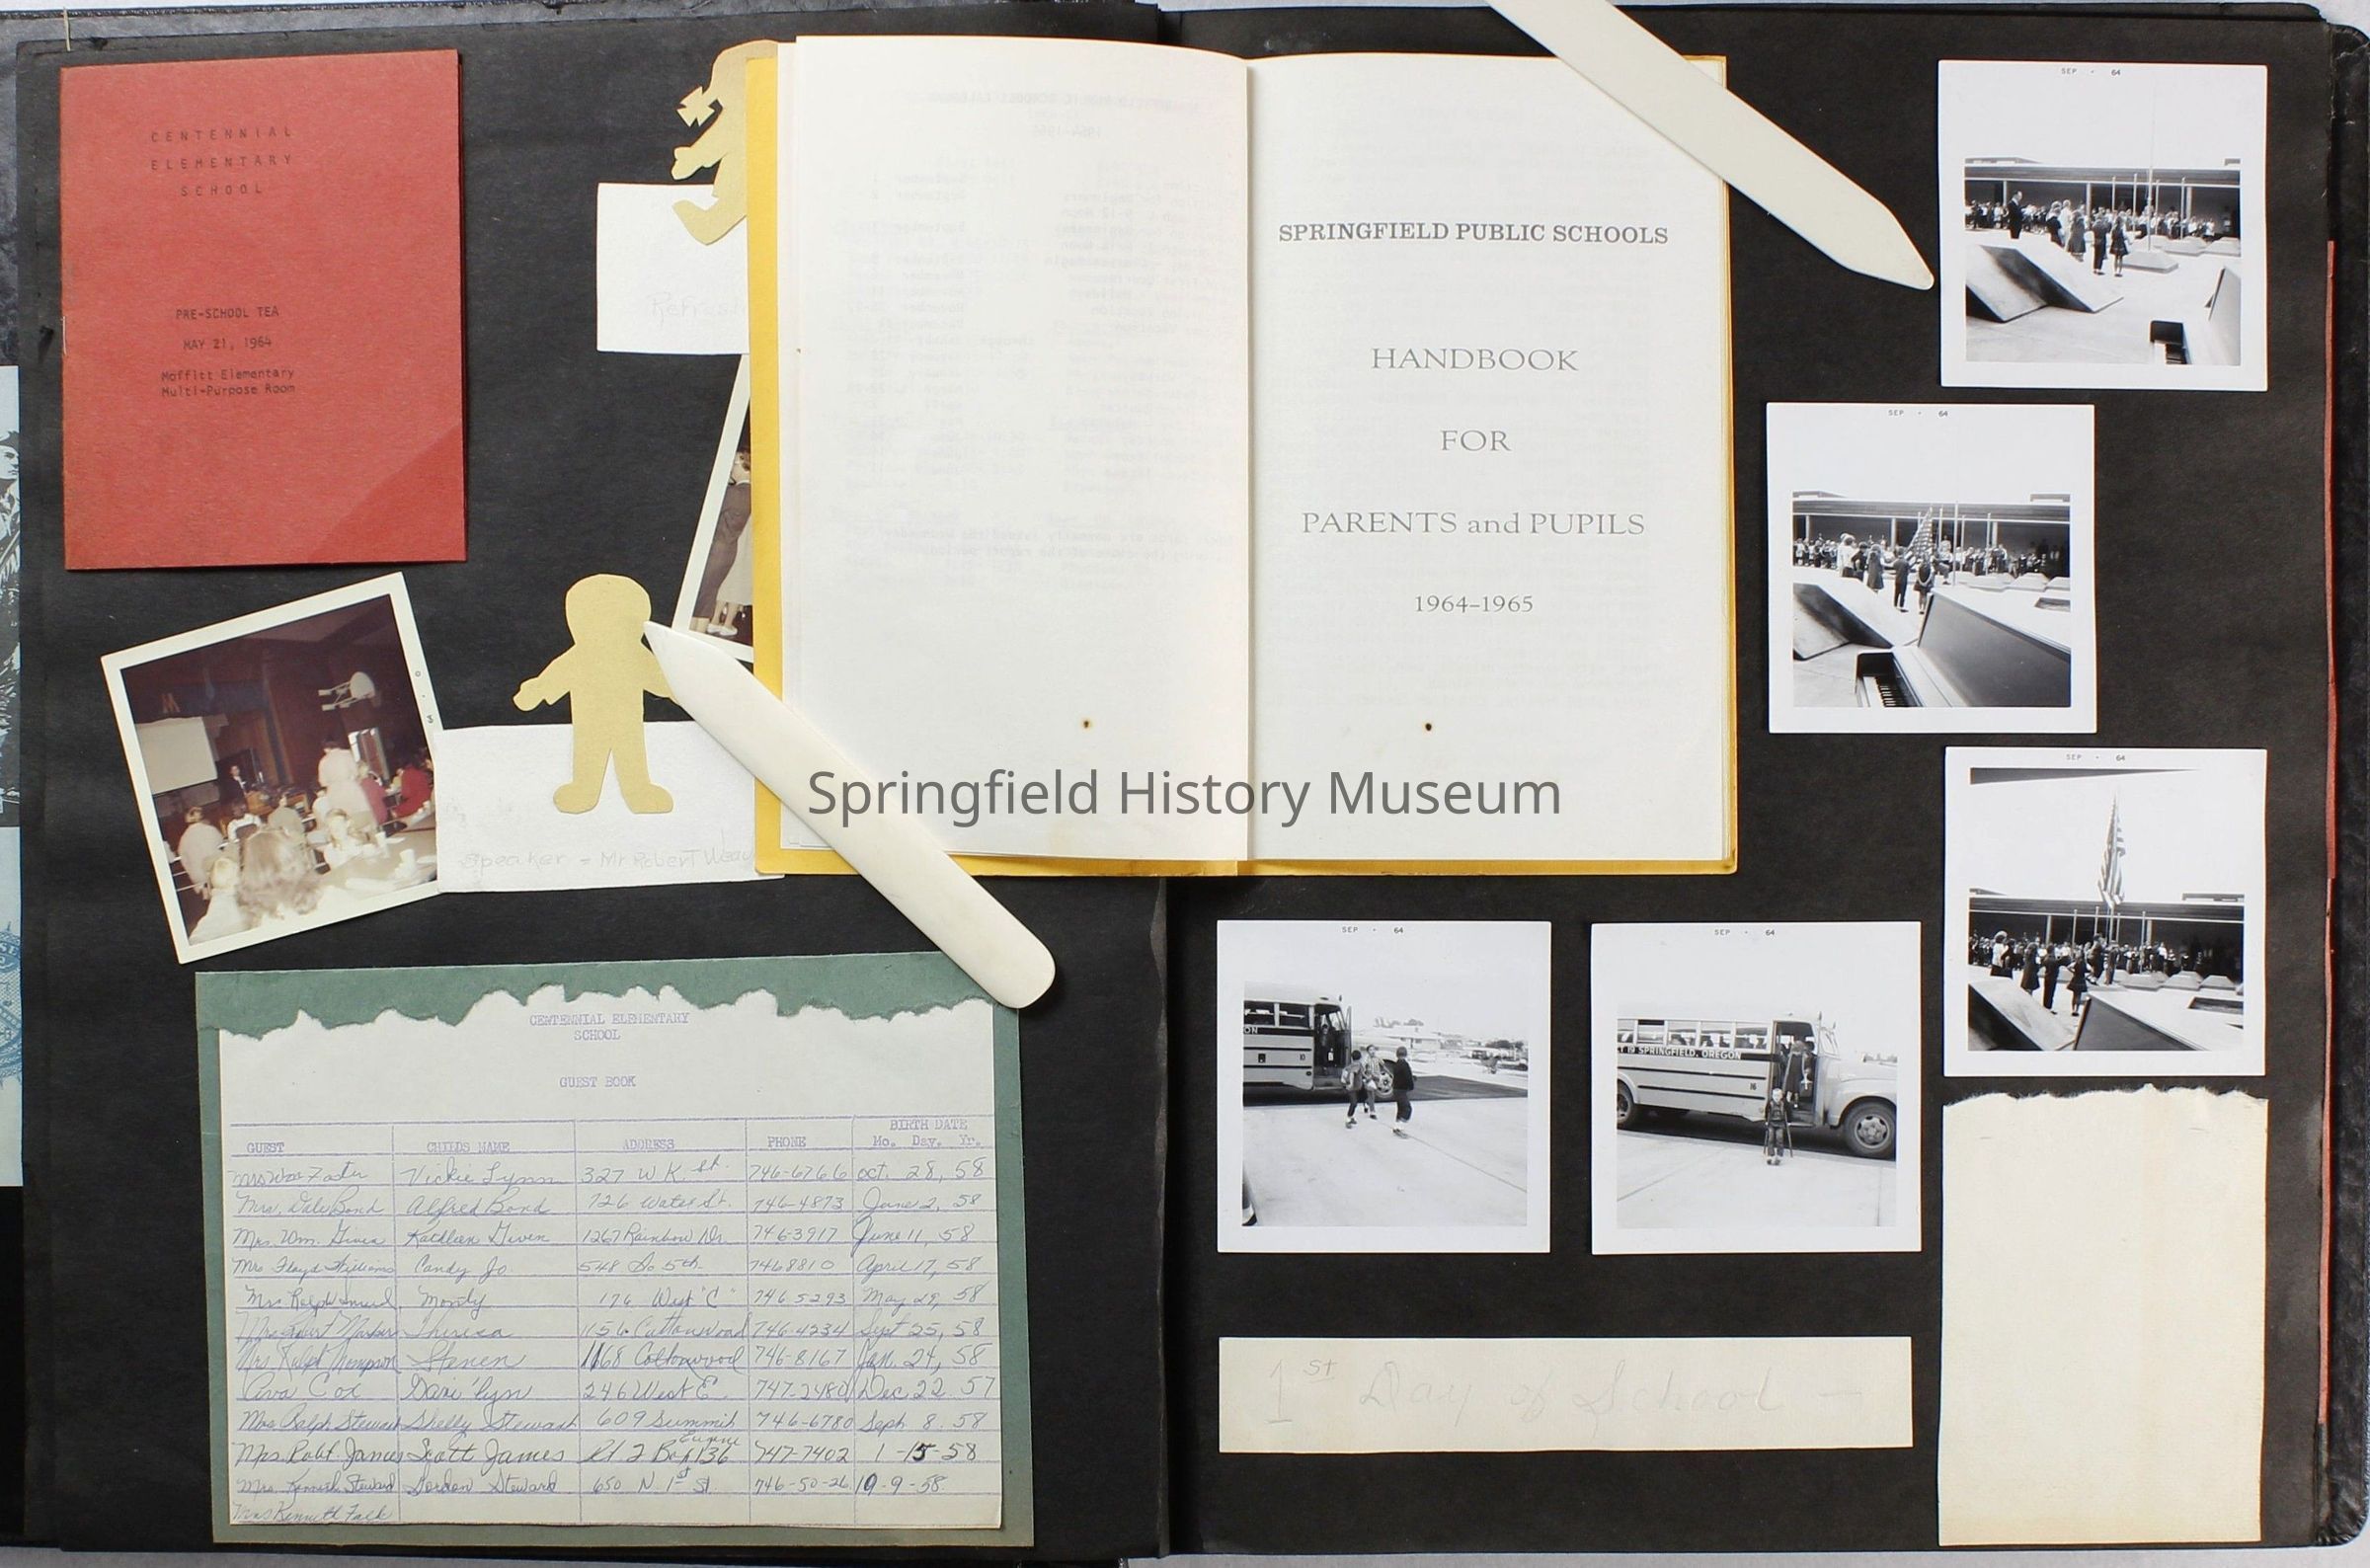 CENTENNIAL
ELEMENTARY
SCHOOL
PRE-SCHOOL TEA
MAY 21, 1964
Moffitt Elementary
Multi-Purpose Room
Speaker - Mr. Robert
SPRINGFIELD PUBLIC SCHOOLS
HANDBOOK
FOR
PARENTS and PUPILS
1964-1965
Springfield History Museum
SEP · 64
SEP · 64
SEP · 64
SEP · 64
SEP · 64
ON
10
19 SPRINGFIELD, OREGON
16
1st Day of School -
CENTENNIAL ELEMENTARY
SCHOOL
GUEST BOOK
GUEST CHILDS NAME ADDRESS PHONE BIRTH DATE
Mo. Day. Yr.
Vickie Lynn 327 W K St. 746-6766 Oct. 28, 58
Mrs. Dale Bond Alfred Bond 726 Water St. 746-4873 June 2, 58
Mrs. Wm. Given Kathleen Given 1267 Rainbow Dr. 746-3917 June 11, 58
Mrs Floyd Williams Candy Jo 548 So 5th. 746 8810 April 17, 58
Mrs Ralph Monty 176 West "C" 746 5293 May 29, 58
Mrs. Theresa 1156 Cottonwood 746-4234 Sept 25, 58
Mrs Ralph Thompson Steven 1168 Cottonwood 746-8167 Jan. 24, 58
Ava Cox 246 West E 747-2480 Dec 22 57
Mrs. Ralph Stewart Shelly Stewart 609 Summit 746-6780 Sept 8. 58
Mrs. Robt James Scott James Rt 2 Box 136 Eugene 747-7402 1-15-58
Mrs. Kenneth Steward Gordon Steward 650 N. 1st St. 746-50-26 10-9-58.
Mrs Kenneth